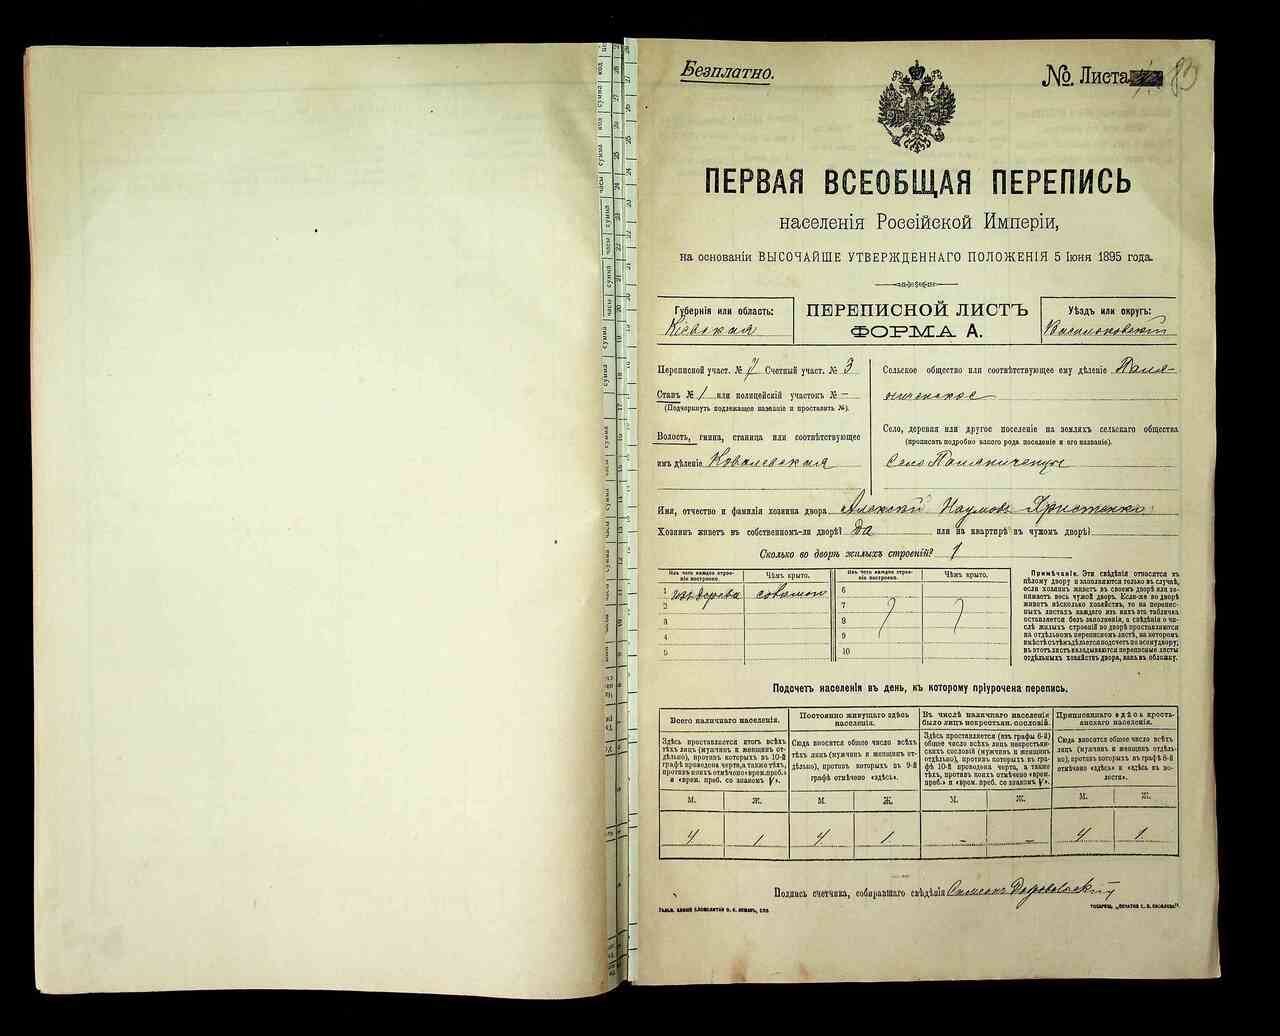 Безплатно.
№ Листа 83
ПЕРВАЯ ВСЕОБЩАЯ ПЕРЕПИСЬ
населенія Россійской Имперіи,
на основаніи ВЫСОЧАЙШЕ УТВЕРЖДЕННАГО ПОЛОЖЕНІЯ 5 Іюня 1895 года.
Губернія или область:
Кіевская
ПЕРЕПИСНОЙ ЛИСТЪ
ФОРМА А.
Уѣздъ или округъ:
Васильковскій
Переписной участ. № 7 Счетный участ. № 3
Станъ № 1 или полицейскій участокъ № –
(Подчеркнуть подлежащее названіе и проставить №).
Волость, гмина, станица или соотвѣтствующее
имъ дѣленіе Ковалевская
Сельское общество или соотвѣтствующее ему дѣленіе Пали-
ниченское
Село, деревня или другое поселеніе на земляхъ сельскаго общества
(прописать подробно какого рода поселеніе и его названіе).
Село
Имя, отчество и фамилія хозяина двора Алексѣй Наумовъ Христенко
Хозяинъ живетъ въ собственномъ-ли дворѣ? Да или на квартирѣ въ чужомъ дворѣ?
Сколько во дворѣ жилыхъ строеній? 1
Изъ чего каждое строе-
ніе построено.
Чѣмъ крыто.
Изъ чего каждое строе-
ніе построено.
Чѣмъ крыто.
1 изъ дерева соломой
2
3
4
5
6
7
8
9
10
Примѣчаніе. Эти свѣдѣнія относятся къ
цѣлому двору и заполняются только въ случаѣ,
если хозяинъ живетъ въ своемъ дворѣ или за-
нимаетъ весь чужой дворъ. Если-же во дворѣ
живетъ нѣсколько хозяйствъ, то на перепис-
ныхъ листахъ каждаго изъ нихъ эта табличка
оставляется безъ заполненія, а свѣдѣнія о чи-
слѣ жилыхъ строеній во дворѣ проставляются
на отдѣльномъ переписномъ листѣ, на которомъ
вмѣстѣ съ тѣмъ дѣлается подсчетъ по всему двору;
въ этотъ листъ вкладываются переписные листы
отдѣльныхъ хозяйствъ двора, какъ въ обложку.
Подсчетъ населенія въ день, къ которому пріурочена перепись.
Всего наличнаго населенія.
Постоянно живущаго здѣсь
населенія.
Въ числѣ наличнаго населенія
было лицъ некрестьян. сословій.
Приписаннаго здѣсь кресть-
янскаго населенія.
Здѣсь проставляется итогъ всѣхъ
тѣхъ лицъ (мужчинъ и женщинъ от-
дѣльно), противъ которыхъ въ 10-й
графѣ проведена черта, а также тѣхъ,
противъ коихъ отмѣчено «врем. преб.»
и «врем. преб. со знакомъ V».
Сюда вносится общее число всѣхъ
тѣхъ лицъ (мужчинъ и женщинъ от-
дѣльно), противъ которыхъ въ 9-й
графѣ отмѣчено «здѣсь».
Здѣсь проставляется (изъ графы 6-й)
общее число всѣхъ лицъ некрестьян-
скихъ сословій (мужчинъ и женщинъ
отдѣльно), противъ которыхъ въ гра-
фѣ 10-й проведена черта, а также
тѣхъ, противъ коихъ отмѣчено «врем.
преб.» и «врем. преб. со знакомъ V».
Сюда вносится общее число всѣхъ
лицъ (мужчинъ и женщинъ отдѣль-
но), противъ которыхъ въ графѣ 8-й
отмѣчено «здѣсь» и «здѣсь въ во-
лости».
М. Ж. М. Ж. М. Ж. М. Ж.
4 1 4 1 – – 4 1
Подпись счетчика, собиравшаго свѣдѣнія Симеонъ